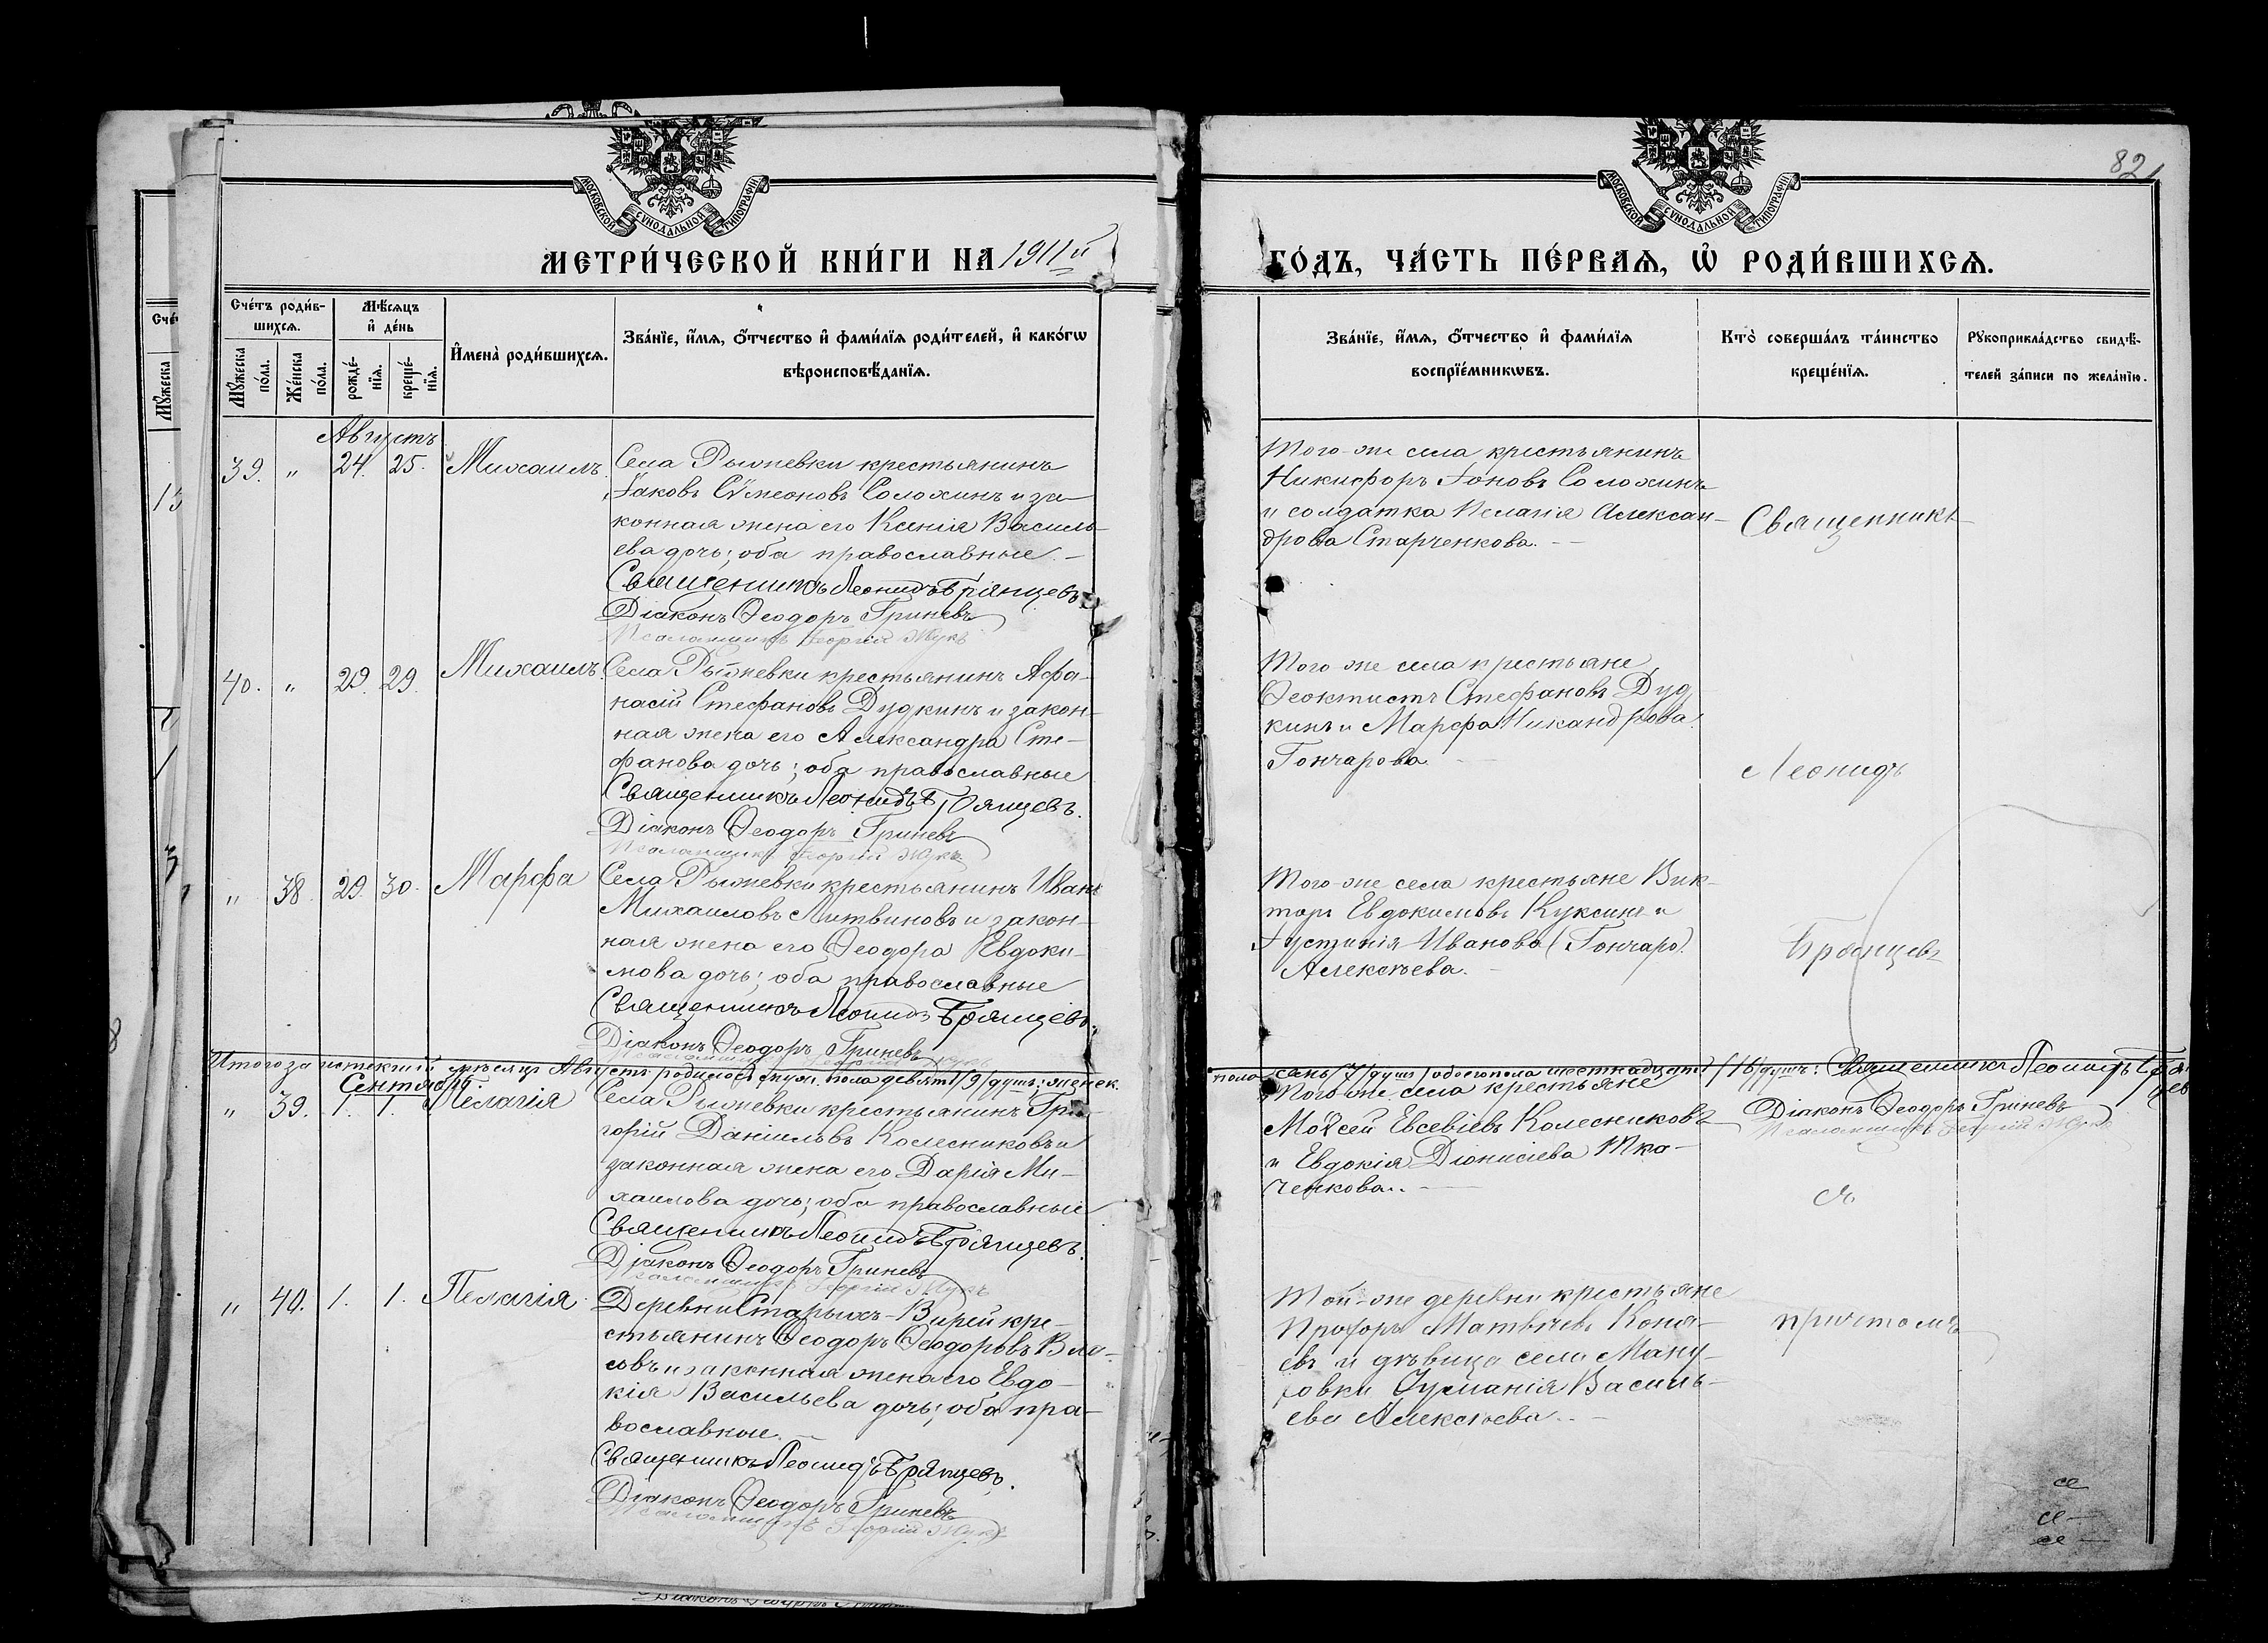 82
МОСКОВСКОЙ СѴНОДАЛЬНОЙ ТИПОГРАФІИ
МОСКОВСКОЙ СѴНОДАЛЬНОЙ ТИПОГРАФІИ
МЕТРИ́ЧЕСКОЙ КНИ́ГИ НА 1911й
ГО́ДЪ, ЧА́СТЬ ПЕ́РВАЯ, Ѡ҆ РОДИ́ВШИХСЯ.
Сче́тъ роди́в-
шихся.
Мꙋ́жеска по́ла.
Же́нска по́ла.
Мѣ́сяцъ
и҆ де́нь
рожде́-
нїя.
креще́-
нїя.
И҆мена̀ роди́вшихся.
Зва́нїе, и҆́мя, ѻ҆́тчество и҆ фами́лїя роди́телей, и҆ како́гѡ
вѣроисповѣ́данїя.
Зва́нїе, и҆́мя, ѻ҆́тчество и҆ фами́лїя
воспрїе́мникѡвъ.
Кто̀ соверша́лъ та́инство
креще́нїя.
Рꙋкоприкла́дство свидѣ́-
телей за́писи по жела́нїю.
Августъ
39. " 24. 25. Михаилъ.
Села Рыжевки крестьянинъ
Іаковъ Сѵмеоновъ Солохинъ и за-
конная жена его Ксенія Василь-
ева дочь; оба православные.
Священникъ Леонидъ Брянцевъ
Діаконъ Ѳеодоръ Гриневъ
Псаломщикъ Георгій Жукъ
Того-же села крестьянинъ
Никифоръ Іоновъ Солохинъ
и солдатка Пелагія Алексан-
дрова Старченкова.
Священникъ
40. " 29. 29. Михаилъ.
Села Рыжевки крестьянинъ Афа-
насій Стефановъ Дудкинъ и закон-
ная жена его Александра Сте-
фанова дочь; оба православные
Священникъ Леонидъ Брянцевъ.
Діаконъ Ѳеодоръ Гриневъ
Псаломщикъ Георгій Жукъ
Того-же села крестьяне
Ѳеоктистъ Стефановъ Дуд-
кинъ и Марфа Никандрова
Гончарова
Леонидъ
" 38. 29. 30. Марфа
Села Рыжевки крестьянинъ Иванъ
Михаиловъ Литвиновъ и закон-
ная жена его Ѳеодора Евдоки-
мова дочь; оба православные
Священникъ Леонидъ Брянцевъ.
Діаконъ Ѳеодоръ Гриневъ
Того-же села крестьяне Вик-
торъ Евдокимовъ Куксинъ и
Іустинія Иванова (Гончаро)
Алексѣева.
Брянцевъ
Итого за истекшій мѣсяцъ Августъ родилось муж. пола девять /9/ душъ; женск.
пола семь /7/ душъ, обоего пола шестнадцать /16/ душъ: Священникъ Леонидъ Брян-
цевъ
Діаконъ Ѳеодоръ Гриневъ
Псаломщикъ Георгій Жукъ
Сентябрь.
" 39. 1. 1. Пелагія
Села Рыжевки крестьянинъ Гри-
горій Даніиловъ Колесниковъ и
законная жена его Дарія Ми-
хаилова дочь; оба православные
Священникъ Леонидъ Брянцевъ.
Діаконъ Ѳеодоръ Гриневъ
Псаломщикъ Георгій Жукъ
Того-же села крестьяне
Моѵсей Евсевіевъ Колесниковъ
и Евдокія Діонисіева Тка-
ченкова.
съ
" 40. 1. 1. Пелагія
Деревни Старыхъ-Вирей кре-
стьянинъ Ѳеодоръ Ѳеодоровъ Вла-
совъ и законная жена его Евдо-
кія Васильева дочь; оба пра-
вославные.
Священникъ Леонидъ Брянцевъ.
Діаконъ Ѳеодоръ Гриневъ
Псаломщикъ Георгій Жукъ
Той-же деревни крестьяне
Прохоръ Матвѣевъ Коня-
евъ и дѣвица села Ману-
ховки Василь-
ева Алексѣева.
причтомъ